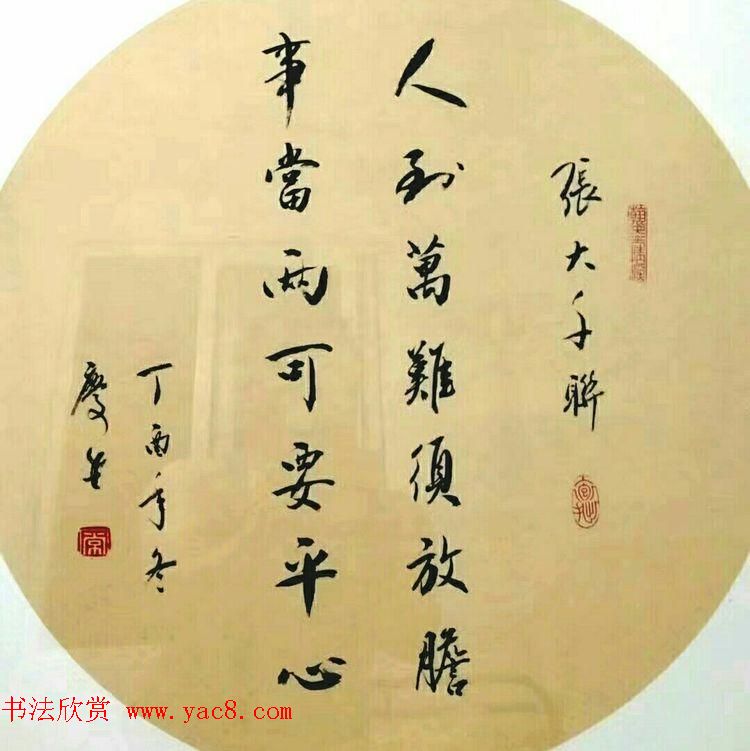 張大千聯
人到萬難須放膽
事當兩可要平心
丁酉年冬
慶
书法欣赏 www.yac8.com